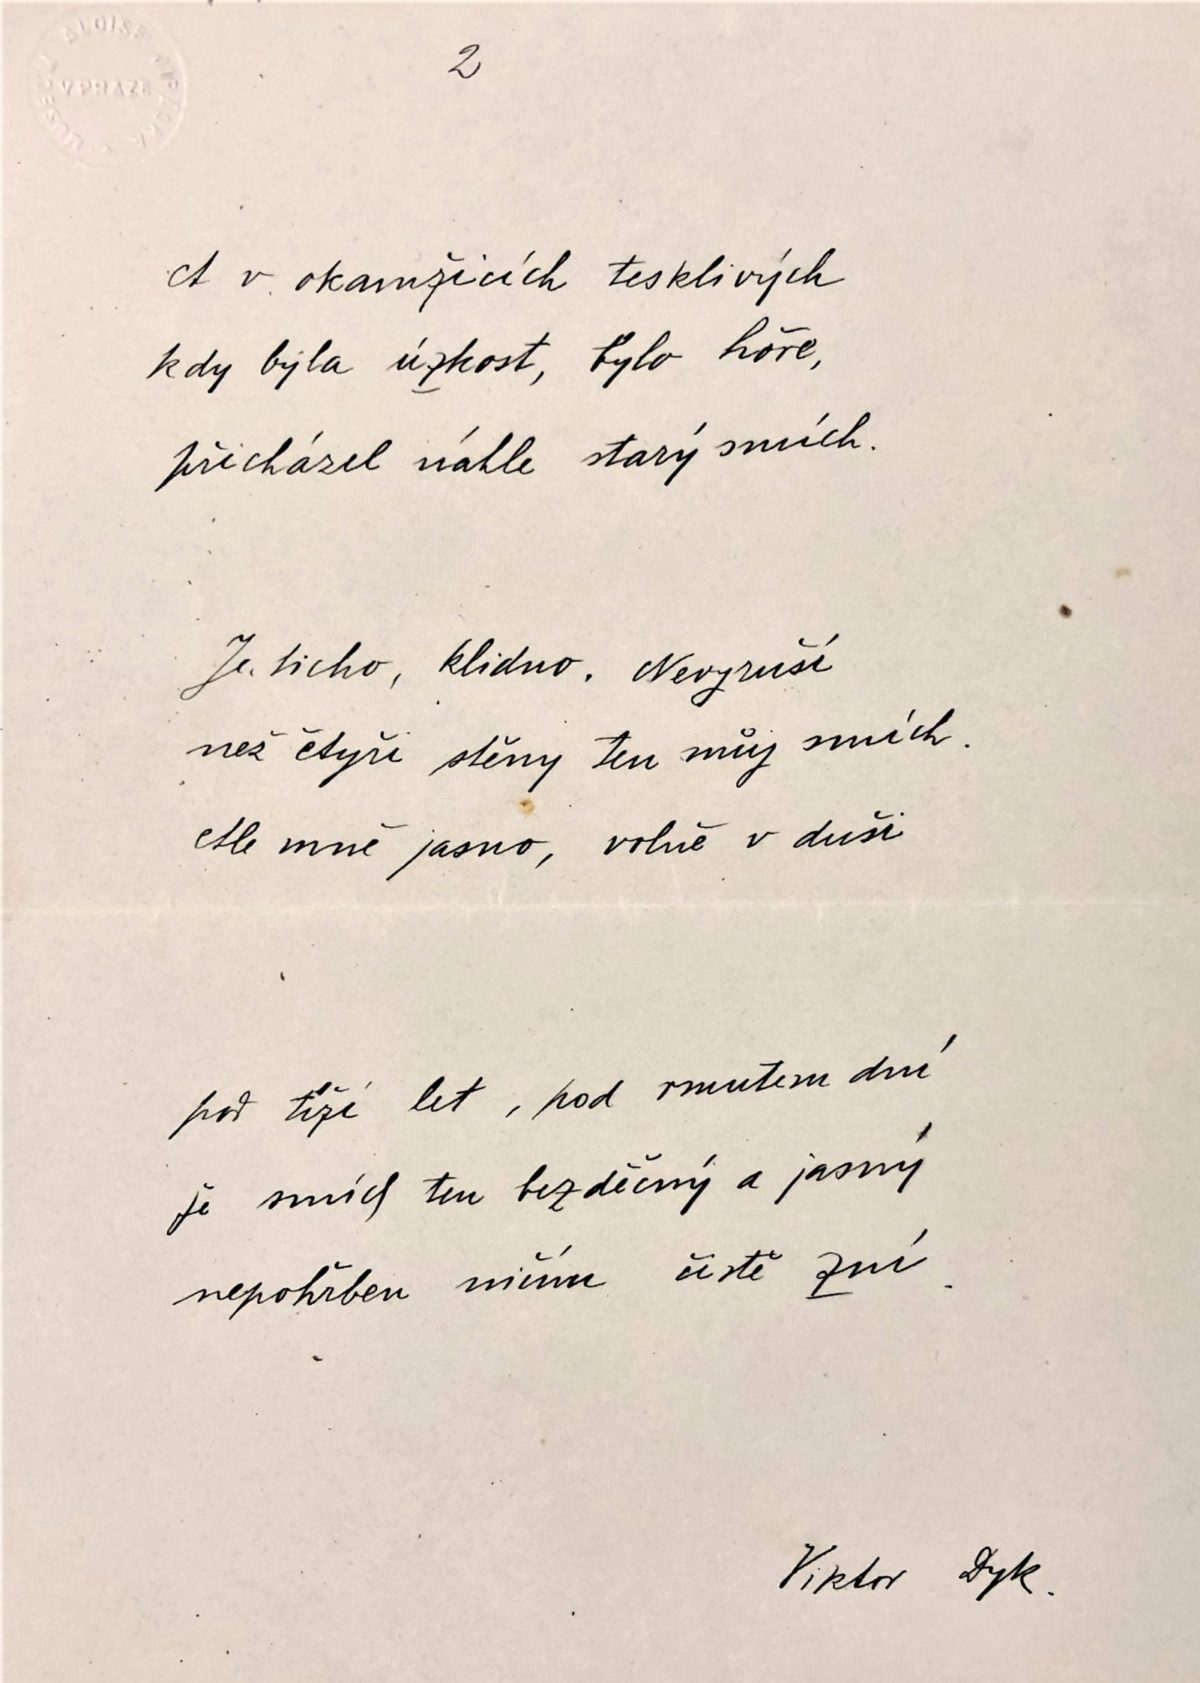 MUSEUM ALOISE JIRÁSKA
V PRAZE
2
A v okamžicích tesklivých
kdy byla úzkost, bylo hoře,
přicházel náhle starý smích.
Je ticho, klidno. Nevyruší
než čtyři stěny ten můj smích.
Ale mně jasno, volně v duši
pod tíží let, pod rmutem dní
je smích ten bezděčný a jasný
nepohřben ničím čistě zní.
Viktor Dyk.